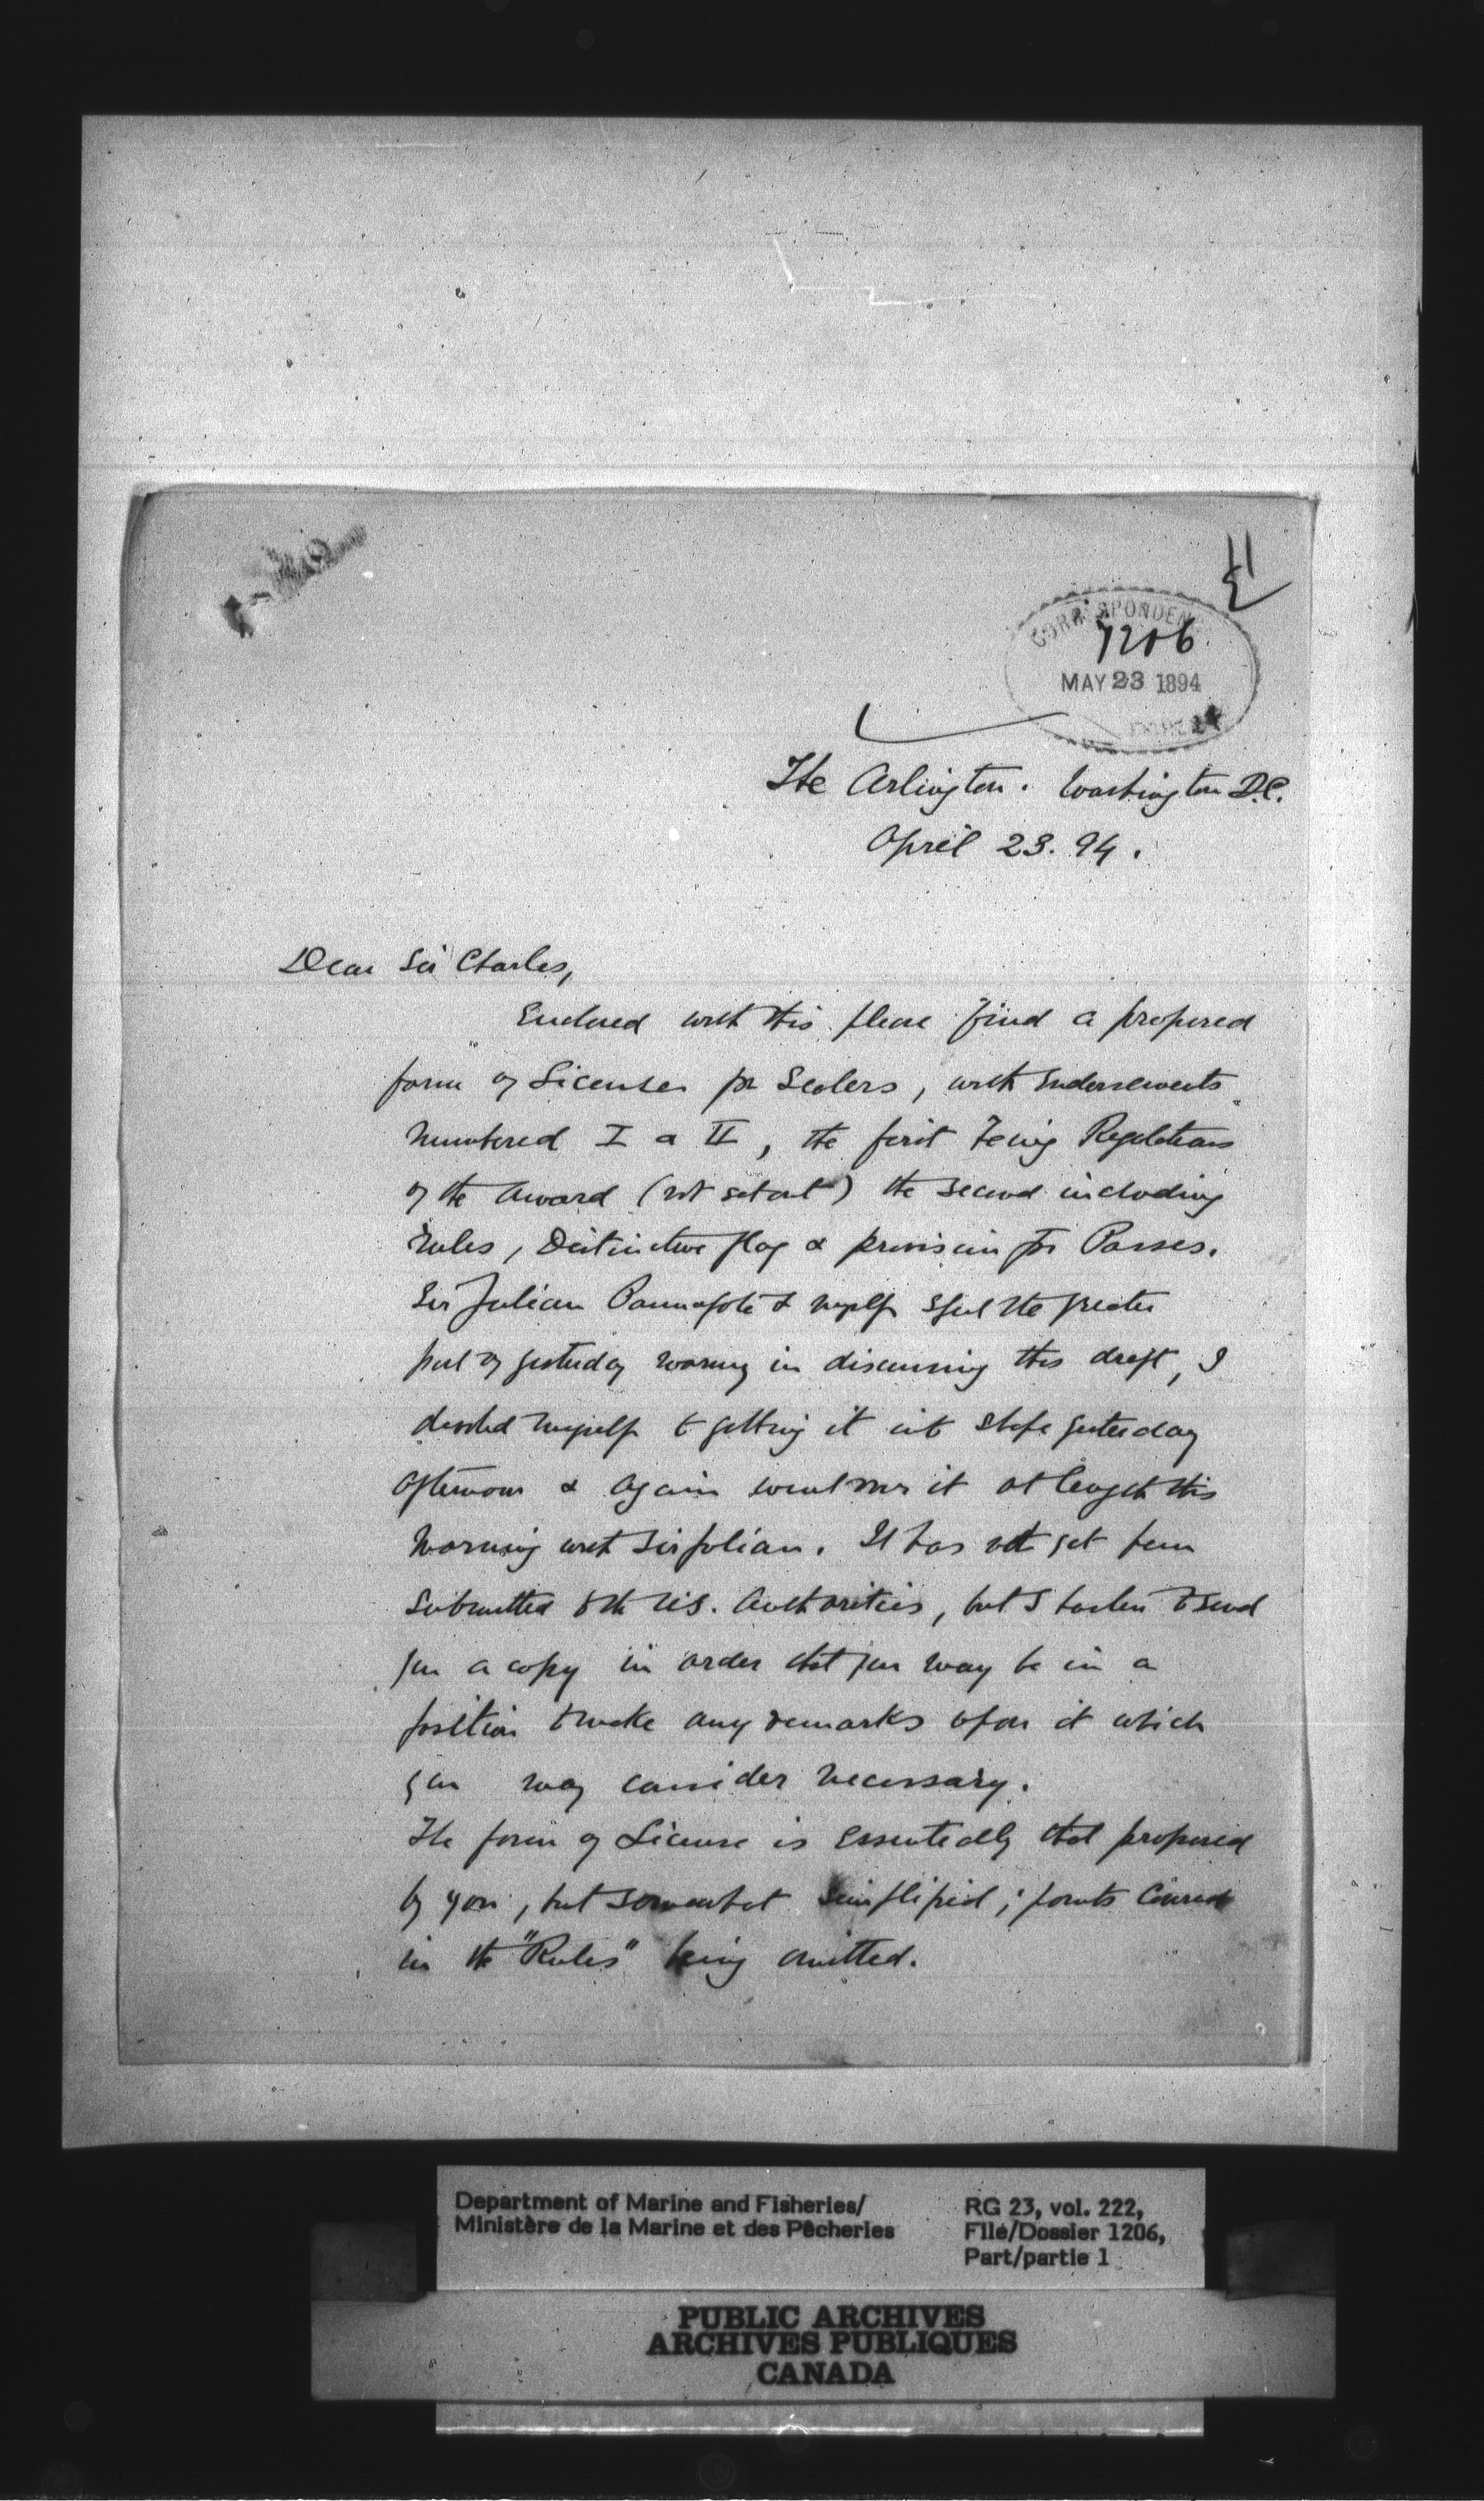 CORRESPONDEN
7206
MAY 23 1894
The Arlington. Washington D.C.
April 23. 94.
Dear Sir Charles,
Enclosed with this please find a proposed
form of License for Sealers, with Endorsements
numbered I & II, the first being Regulations
of the Award (not set out) the second including
Rules, Distinctive flag & provision for Passes.
Sir Julian Pauncefote & myself spent the greater
part of yesterday morning in discussing this draft, I
devoted myself to getting it into shape yesterday
afternoon & again went over it at length this
morning with Sir Julian. It has not yet been
submitted to the U.S. Authorities, but I hasten to send
you a copy in order that you may be in a
position to make any remarks upon it which
you may consider necessary.
The form of License is essentially that proposed
by you, but somewhat simplified; points covered
in the "Rules" being omitted.
Department of Marine and Fisheries/
Ministère de la Marine et des Pêcheries
RG 23, vol. 222,
File/Dossier 1206,
Part/partie 1
PUBLIC ARCHIVES
ARCHIVES PUBLIQUES
CANADA